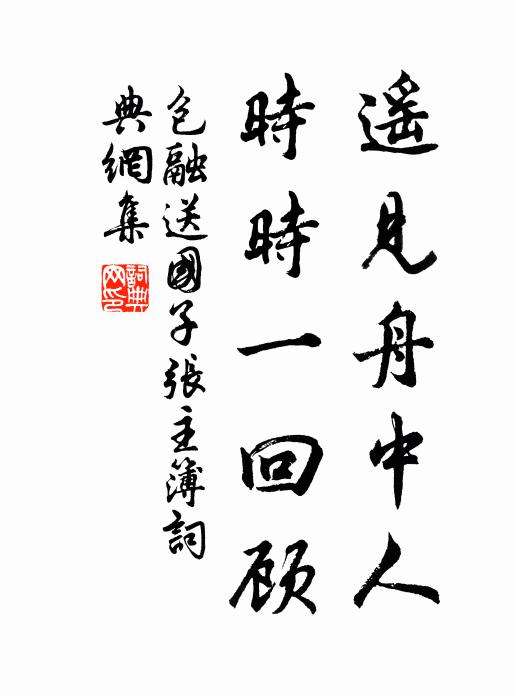 遥見舟中人
時時一回顾
包融送國子張主簿詞
典網集
詞典網印